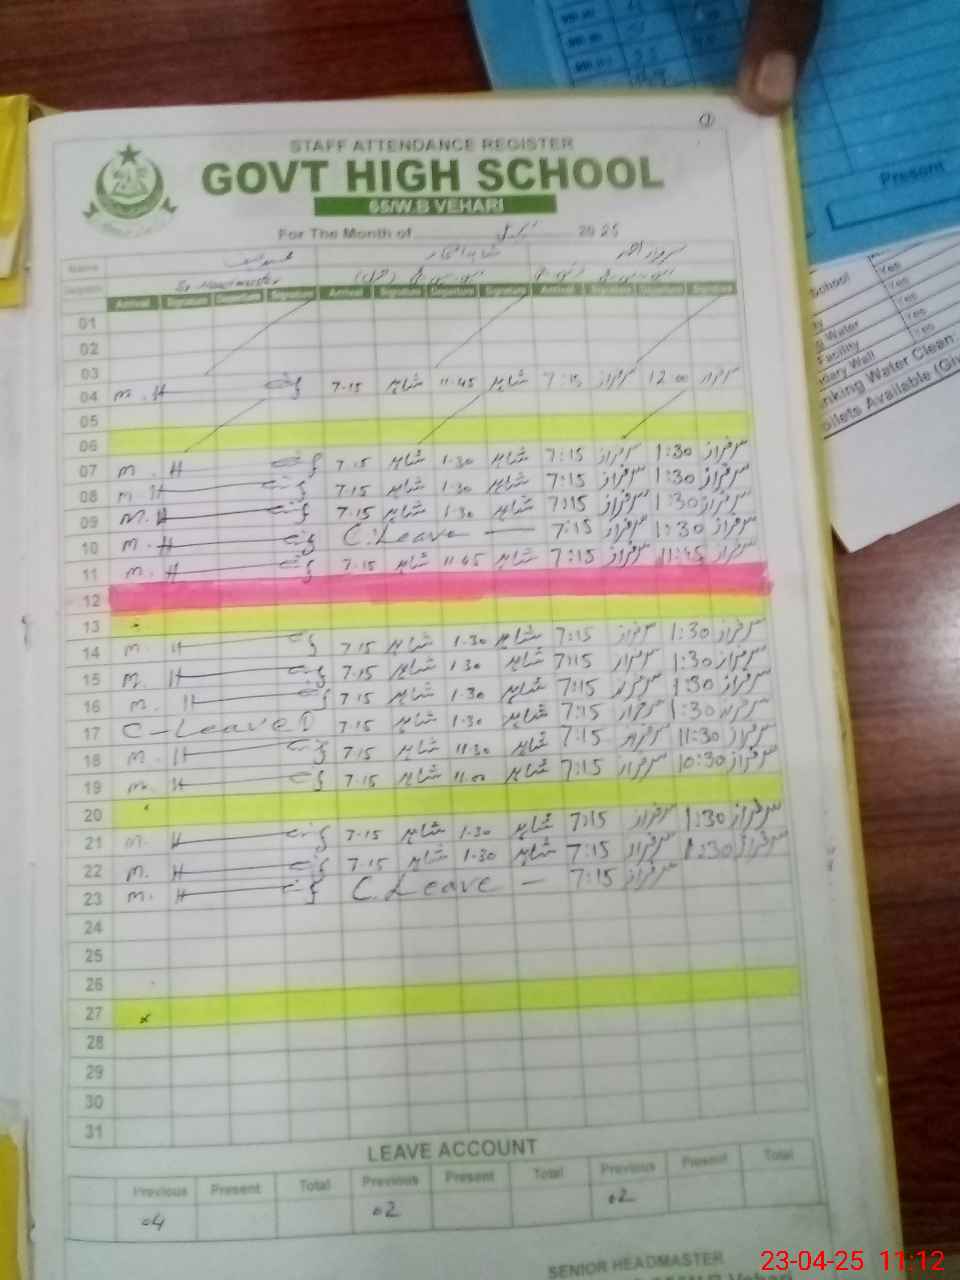 STAFF ATTENDANCE REGISTER
GOVT HIGH SCHOOL
65/W.B VEHARI
For The Month of اپریل 2025
Name
Sr Headmaster
Arrival Signature Departure Signature Arrival Signature Departure Signature Arrival Signature Departure Signature
01
02
03
04 m. H 7-15 شاہد 11-45 شاہد 7:15 سرفراز 12:00 سرفراز
05
06
07 m. H 7-15 شاہد 1-30 شاہد 7:15 سرفراز 1:30 سرفراز
08 m. H 7-15 شاہد 1-30 شاہد 7:15 سرفراز 1:30 سرفراز
09 m. H 7-15 شاہد 1-30 شاہد 7:15 سرفراز 1:30 سرفراز
10 m. H C.Leave — 7:15 سرفراز 1:30 سرفراز
11 m. H 7-15 شاہد 11-45 شاہد 7:15 سرفراز 11:45 سرفراز
12
13
14 m. H 7-15 شاہد 1-30 شاہد 7:15 سرفراز 1:30 سرفراز
15 m. H 7-15 شاہد 1-30 شاہد 7:15 سرفراز 1:30 سرفراز
16 m. H 7-15 شاہد 1-30 شاہد 7:15 سرفراز 1:30 سرفراز
17 C-Leave 7-15 شاہد 1-30 شاہد 7:15 سرفراز 1:30 سرفراز
18 m. H 7-15 شاہد 11-30 شاہد 7:15 سرفراز 11:30 سرفراز
19 m. H 7-15 شاہد 11-00 شاہد 7:15 سرفراز 10:30 سرفراز
20
21 m. H 7-15 شاہد 1-30 شاہد 7:15 سرفراز 1:30 سرفراز
22 m. H 7-15 شاہد 1-30 شاہد 7:15 سرفراز 1:30 سرفراز
23 m. H C.Leave — 7:15 سرفراز
24
25
26
27 x
28
29
30
31
LEAVE ACCOUNT
Previous Present Total Previous Present Total Previous Present Total
04 02 02
SENIOR HEADMASTER
Present
School Yes
Yes
Water Yes
Facility Yes
Boundary Wall Yes
Drinking Water Clean
Toilets Available
23-04-25 11:12